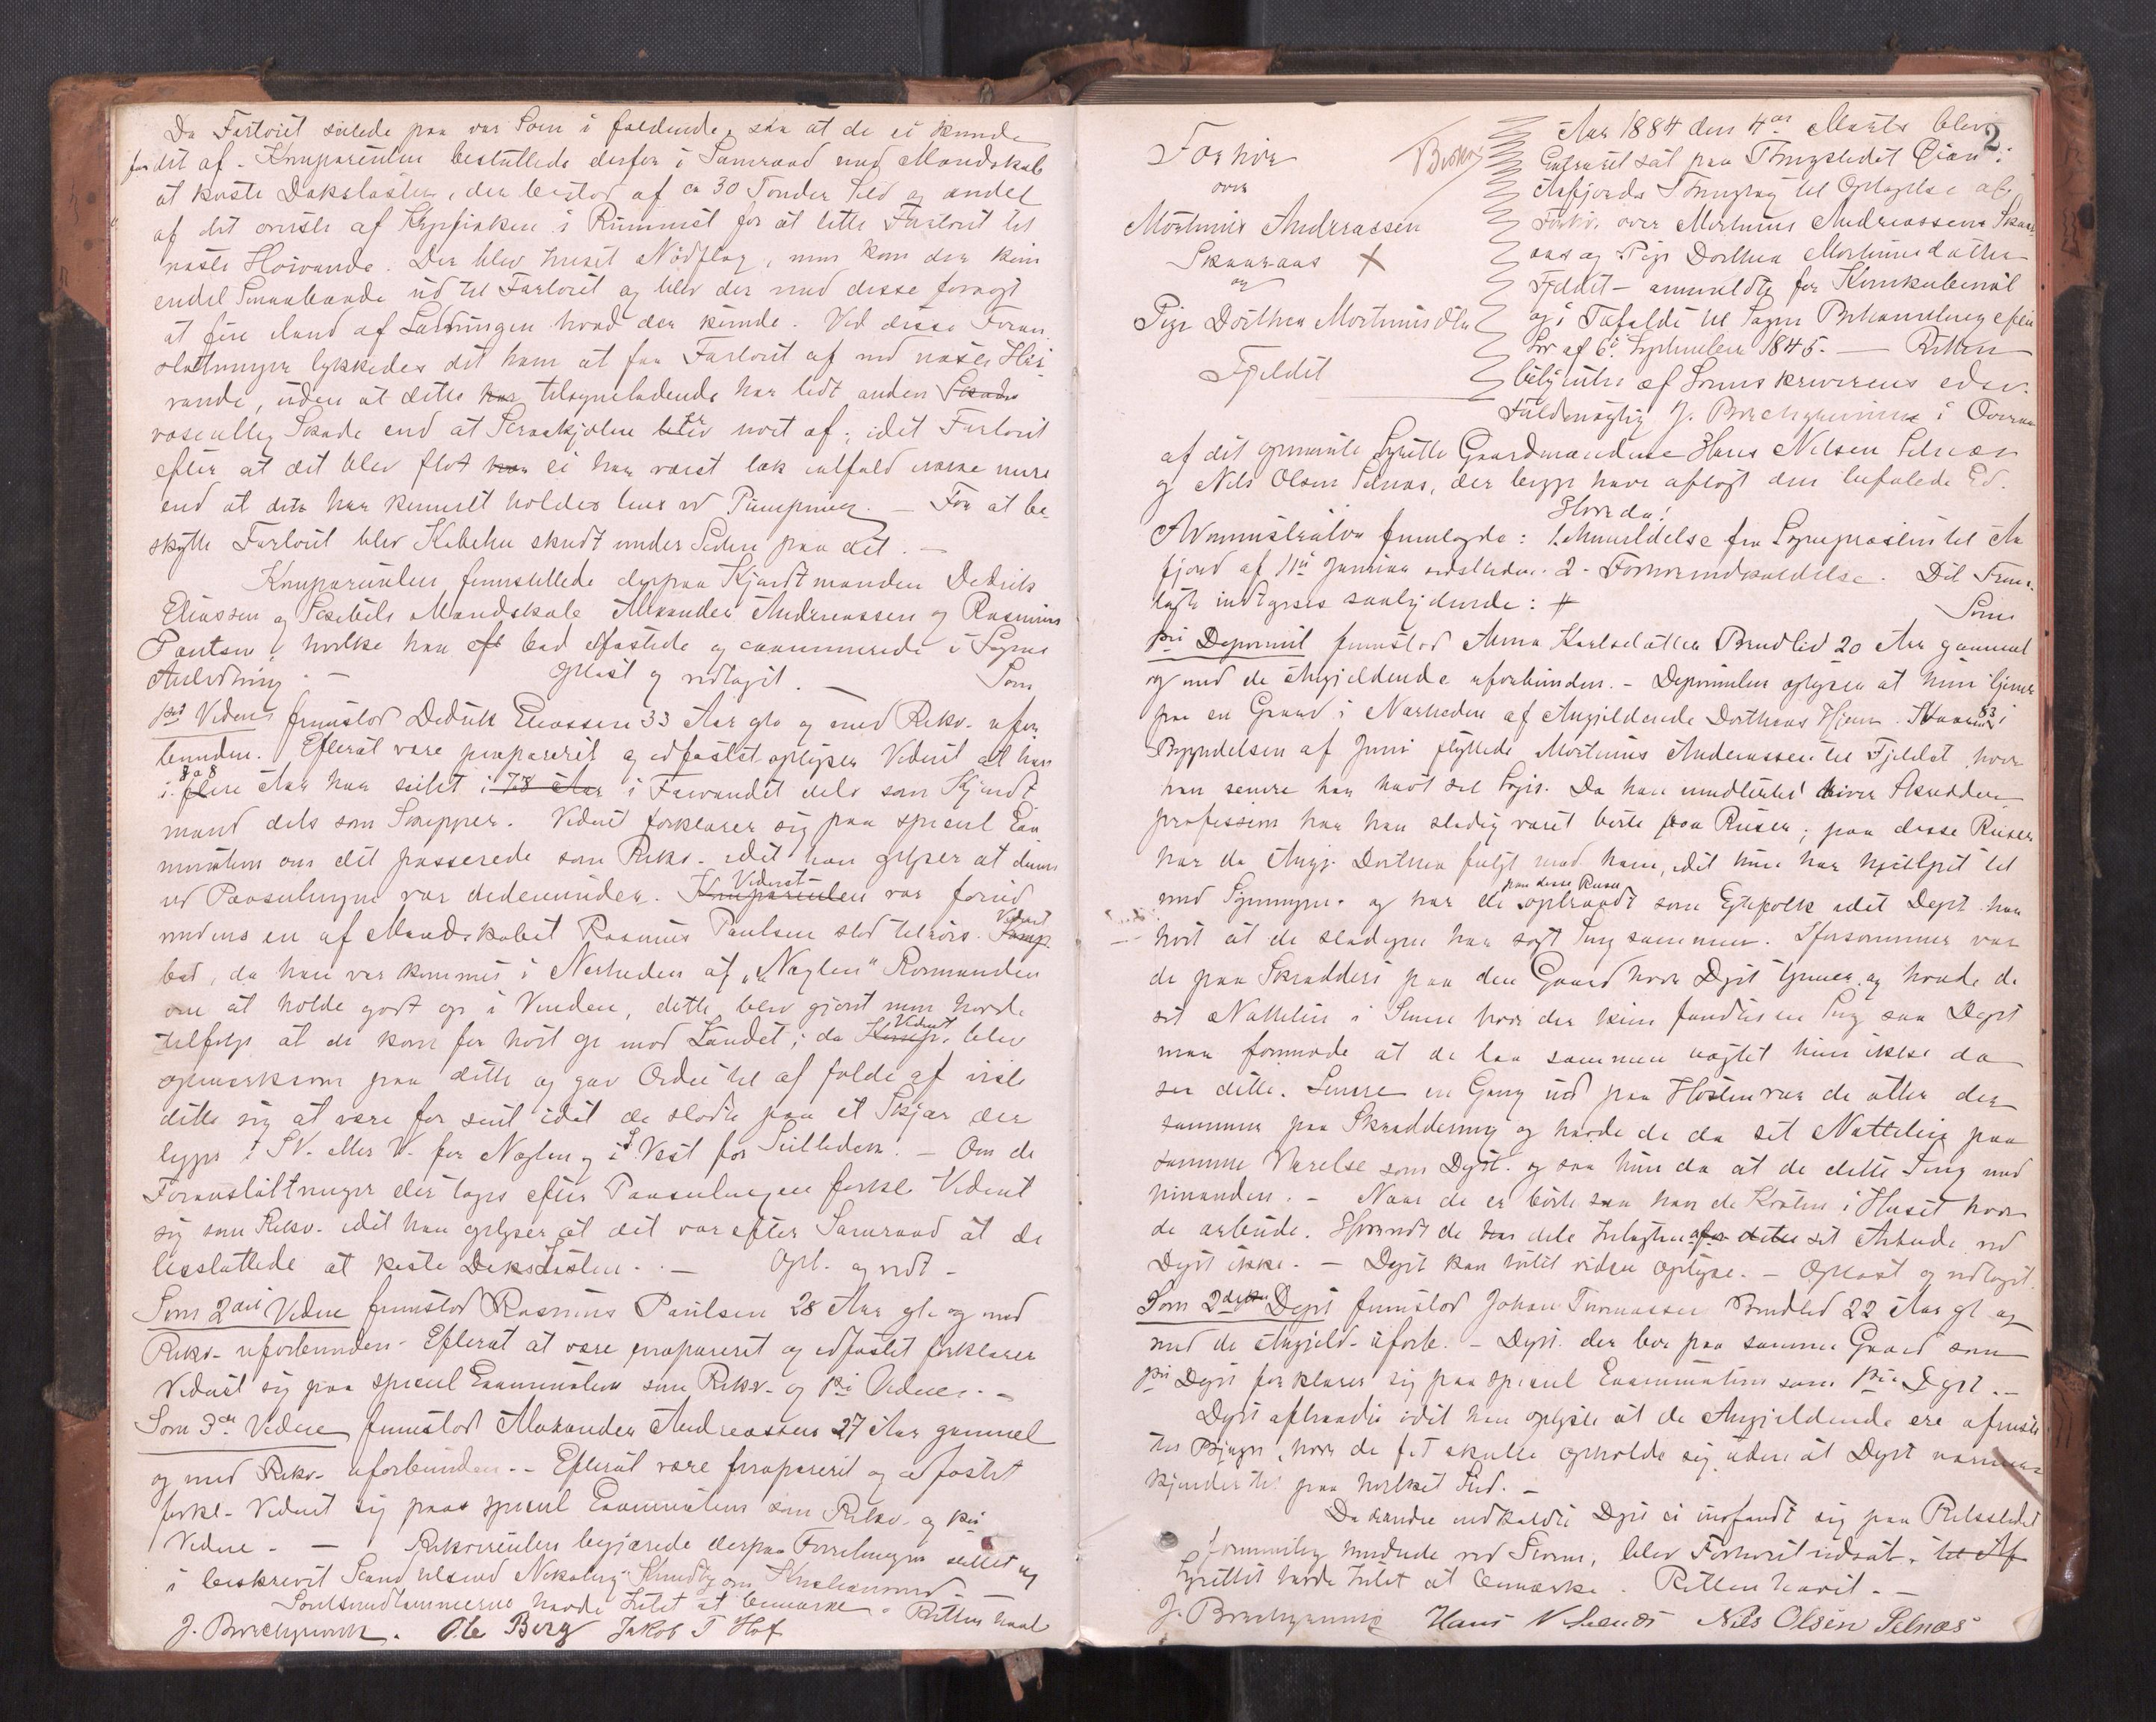 Da Fartøiet satte paa var Søen i faldende, saa at de ei kunde
faa det af. Komparenten besluttede derfor i Samraad med Mandskab
at kaste Dækslasten, der bestod af ca 30 Tønder Sild og endel
af det øverste af Klipfisken i Rummet for at lette Fartøiet til
næste Høivande. Der blev heiset Nødflag, men kom der kun
endel Smaabaade ud til Fartøiet og blev der med disse forsøgt
at føre iland af Ladningen hvad der kunde. Ved disse Foran-
staltninger lykkedes det ham at faa Fartøiet af ved næste Høi-
vande, uden at dette har tilsyneladende har lidt anden Skade
væsentlig Skade end at Straakjølen blev revet af; idet Fartøiet
efter at det blev flot har ei har været læk ialfald ikke mere
end at det har kunnet holdes læns ved Pumpning. – For at be-
skytte Fartøiet blev Kabelen skudt under Siden paa det. –
Komparenten fremstillede derpaa Kjendtmanden Dedrik
Eliassen og Skibets Mandskab Alexander Andreassen og Rasmus
Paulsen, hvilke han bad edfæstede og examinerede i Sagens
Anledning. – Oplæst og vedtaget. – Som
1ste Vidne fremstod Dedrik Eliassen 33 Aar gl. og med Rekv. ufor-
bunden. Efterat være præpareret og edfæstet oplyser Vidnet at han
7 a 8
i flere Aar har seilet i 7 a 8 Aar i Farvandet dels som Kjendt-
mand dels som Skipper. Vidnet forklarer sig paa speciel Exa-
mination om det passerede som Rekv. idet han oplyser at denne
Vidnet
ved Paaseilingen var nedenunder. Komparenten var forud
medens en af Mandskabet Rasmus Paulsen stod tilrors. Komp. Vidnet
bad, da han var kommet i Nærheden af "Naglen" Rormanden
om at holde godt op i Vinden, dette blev gjort men havde
tilfølge at de kom for høit op mod Landet; da Komp. Vidnet blev
opmærksom paa dette og gav Ordre til at falde af viste
dette sig at være for sent idet de stødte paa et Skjær der
ligger i SV. eller V. for Naglen og i Vest for Seilleden. – Om de
Foranstaltninger der toges efter Paaseilingen forkl. Vidnet
sig som Rekv. idet han oplyser at det var efter Samraad at de
besluttede at kaste Dækslasten. – Opl. og vedt. –
Som 2det Vidne fremstod Rasmus Paulsen 28 Aar gl. og med
Rekv. uforbunden. Efterat at være præpareret og edfæstet forklarer
Vidnet sig paa speciel Examination som Rekv. og 1ste Vidne. –
Som 3die Vidne fremstod Alexander Andreassen 27 Aar gammel
og med Rekv. uforbunden. – Efterat være præpareret og edfæstet
forkl. Vidnet sig paa speciel Examination som Rekv. og 1ste
Vidne. – Rekvirenten begjærede derpaa Forretningen sluttet og
i beskreven Stand tilsend
Søretsmedlemmerne havde Intet at bemærke. Retten hævet
J. Brechan Ole Berg Jakob T Hof
2
Forhør
over
Mortinus Andreassen
Skaaraas X
og
Pige Dorthea Mortinusdtr
Fjeldet
Aar 1884 den 4de Marts blev
Extraret sat paa Thingstedet Øian i
Aafjords Thinglag til Optagelse af
Forhør over Mortinus Andreassen Skaar-
aas og Pige Dorthea Mortinusdatter
Fjeldet – anmeldte for Konkubinat
og i Tilfælde til Sagens Behandling efter
Lov af 6te September 1845. – Retten
betjentes af Sorenskriverens edsv.
Fuldmægtig J. i Overvær
af det opnævnte Lagrette Gaardmændene Hans Nilsen Selnæs
og Nils Olsen Selnæs, der begge have aflagt den befalede Ed.
Hvorda!
Administrator fremlagde: 1. Anmeldelse fra Sognepræsten til Aa-
fjord af 11te Januar sidstleden. 2. Forhørsindkaldelse. Det Frem-
lagte indtages saalydende: #
Som
1ste Deponent fremstod Anna Karlsdatter Brudlid 20 Aar gammel
og med de Angjeldende uforbunden. – Deponenten oplyser at hun tjener
paa en Gaard i Nærheden af Angjeldende Dortheas Hjem. 83 i
Begyndelsen af Juni flyttede Mortinus Andreassen til Fjeldet, hvor
han senere har havt sit Logis. Da han driver Skrædder-
profession har han stadig været borte paa Reiser; paa disse Reiser
har da Angj. Dorthea fulgt med ham, idet hun har hjulpet til
paa disse Reiser
med Syningen og har de optraadt som Egtefolk idet Dept. har
hørt at de stadigen har søgt Seng sammen. Iforsommer var
de paa Skrædderi paa den Gaard hvor Dept. tjener og havde de
sit Natteleie i Stuen hvor der kun fandtes en Seng saa Dept.
maa formode at de laa sammen uagtet hun ikke da
saa dette. Senere en Gang ud paa Høsten var de atter der
sammen paa Skræddering og havde de da sit Natteleie paa
samme Værelse som Dept. og saa hun da at de delte Seng med
hinanden. – Naar de er borte saa har de Kosten i Huset hvor
de arbeide. Hvorvidt de har dele Indtægten af sit Arbeide ved
Dept. ikke. – Dept. kan intet videre oplyse. – Oplæst og vedtaget.
Som 2den Dept. fremstod Johan Thomassen Brudlid 22 Aar gl. og
med de Angjeld. uforb. – Dept. der bor paa samme Gaard som
1ste Dept. forklarer sig paa speciel Examination som 1ste Dept. –
Dept. aftraadte idet han oplyste at de Angjeldende ere afreist
til Bjugn, hvor de f. T. skulle opholde sig, uden at Dept. nærmere
kjender til paa hvilket Sted. –
Da de andre indkaldte Dept. ei indfandt sig paa Retsstedet
formentlig hindrede ved Storm, blev Forhøret udsat. til Af
Lagrettet havde Intet at bemærke. Retten hævet. –
J. Hans N Selnæs Nils Olsen Selnæs